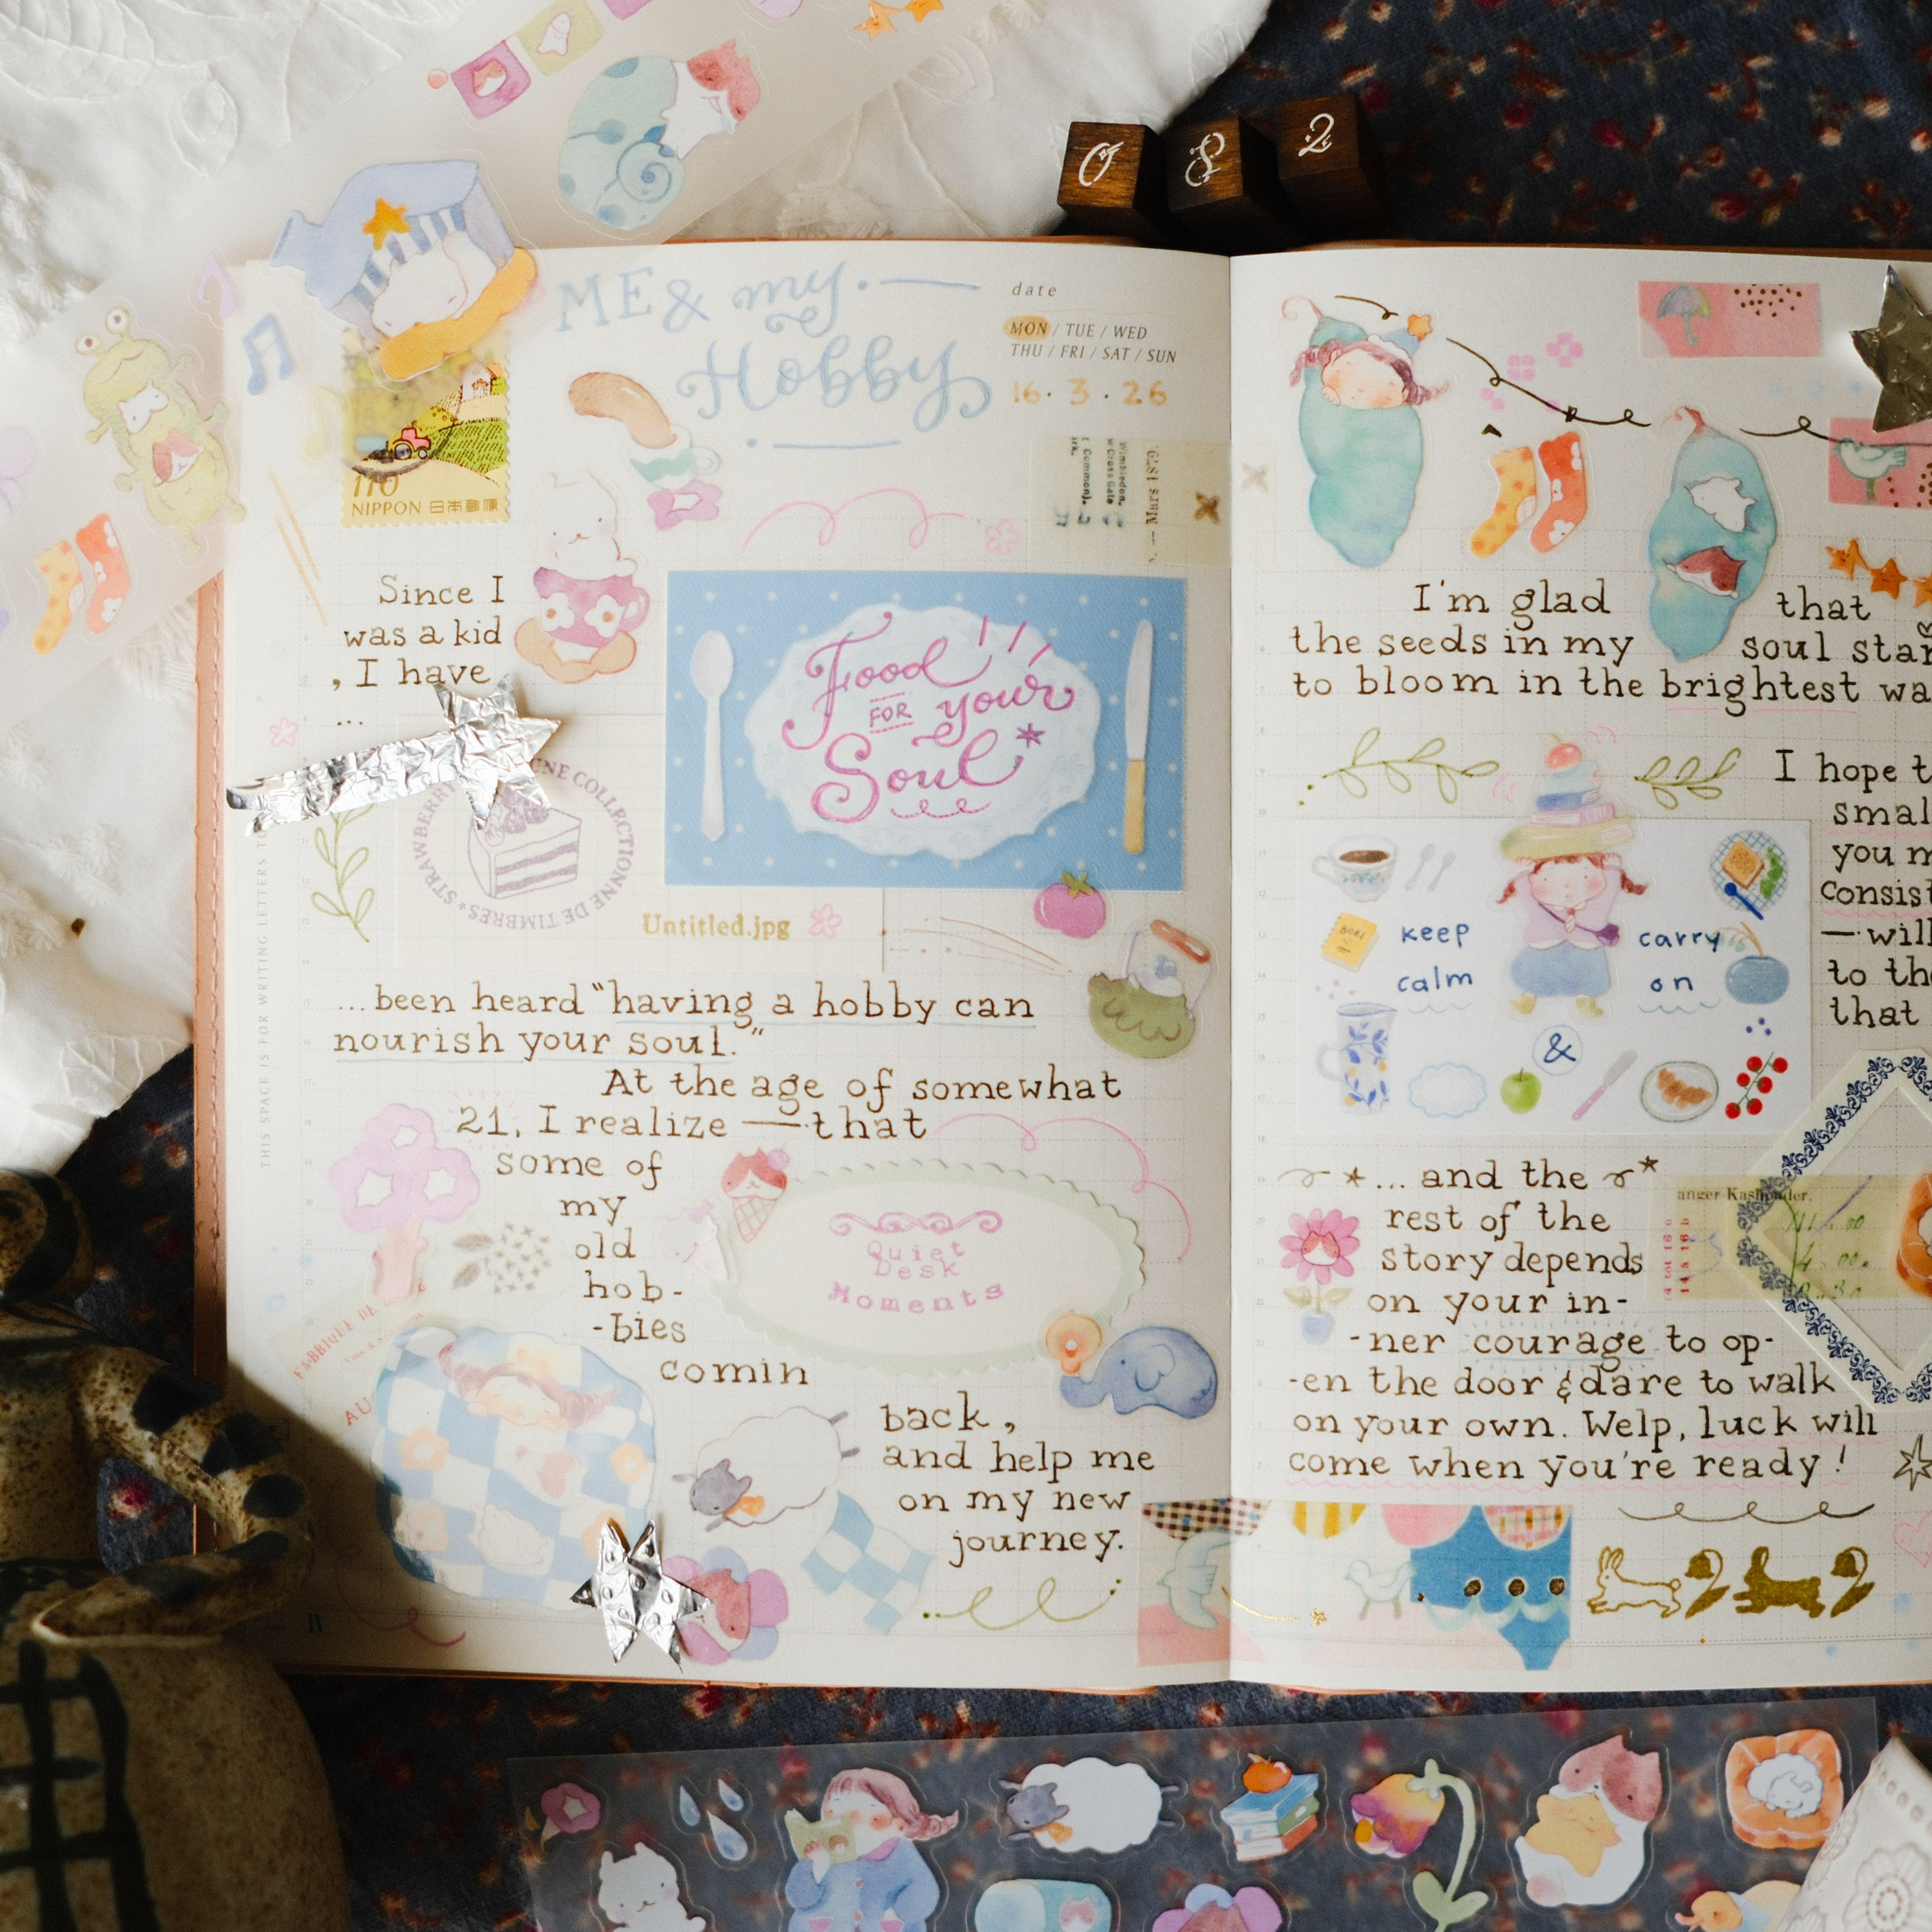 ME & my
Hobby
date
MON / TUE / WED
THU / FRI / SAT / SUN
16 · 3 · 26
110
NIPPON 日本郵便
Wimbledon.
w Cross Gate
Common).
— Mars 1879.
Since I
was a kid
, I have
...
Food
FOR your
Soul
STRAWBERRY
COLLECTIONNE DE TIMBRES
Untitled.jpg
THIS SPACE IS FOR WRITING LETTERS
...been heard "having a hobby can
nourish your soul."
At the age of somewhat
21, I realize — that
some of
my
old
hob-
-bies
comin
back,
and help me
on my new
journey.
Quiet
Desk
Moments
AU
I'm glad that
the seeds in my soul star
to bloom in the brightest wa
I hope t
smal
you m
consist
— will
to the
that
keep
calm
carry
on
&
... and the
rest of the
story depends
on your in-
-ner courage to op-
-en the door & dare to walk
on your own. Welp, luck will
come when you're ready!